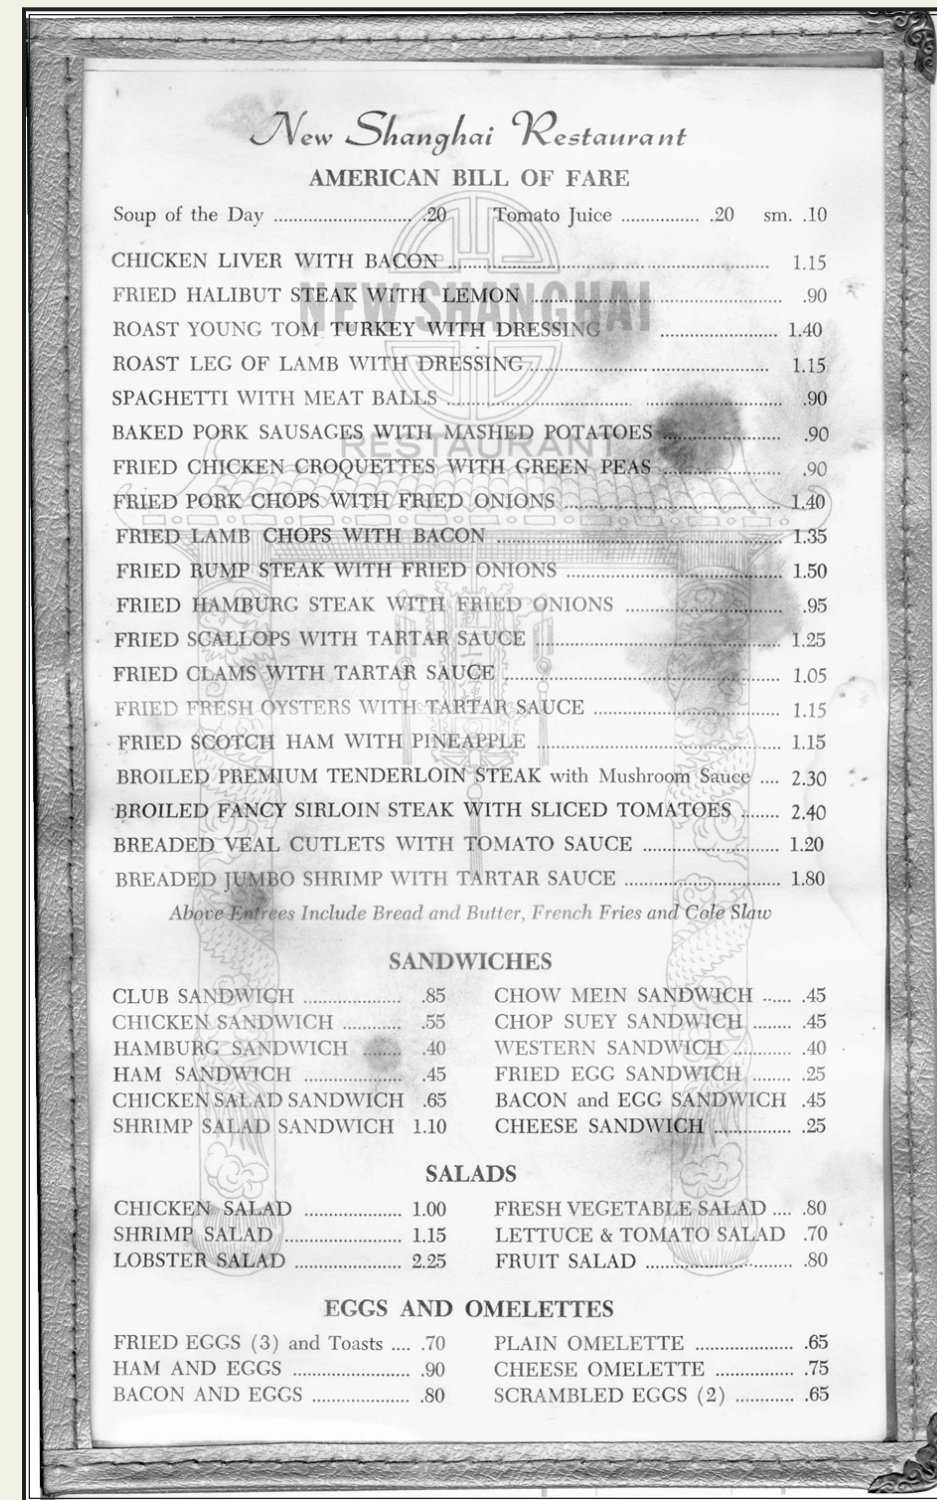 New Shanghai Restaurant
AMERICAN BILL OF FARE
Soup of the Day .......................... .20 Tomato Juice ............... .20 sm. .10
CHICKEN LIVER WITH BACON ........................ 1.15
FRIED HALIBUT STEAK WITH LEMON ........................ .90
ROAST YOUNG TOM TURKEY WITH DRESSING ........................ 1.40
ROAST LEG OF LAMB WITH DRESSING ........................ 1.15
SPAGHETTI WITH MEAT BALLS ........................ .90
BAKED PORK SAUSAGES WITH MASHED POTATOES ........................ .90
FRIED CHICKEN CROQUETTES WITH GREEN PEAS ........................ .90
FRIED PORK CHOPS WITH FRIED ONIONS ........................ 1.40
FRIED LAMB CHOPS WITH BACON ........................ 1.35
FRIED RUMP STEAK WITH FRIED ONIONS ........................ 1.50
FRIED HAMBURG STEAK WITH FRIED ONIONS ........................ .95
FRIED SCALLOPS WITH TARTAR SAUCE ........................ 1.25
FRIED CLAMS WITH TARTAR SAUCE ........................ 1.05
FRIED FRESH OYSTERS WITH TARTAR SAUCE ........................ 1.15
FRIED SCOTCH HAM WITH PINEAPPLE ........................ 1.15
BROILED PREMIUM TENDERLOIN STEAK with Mushroom Sauce .... 2.30
BROILED FANCY SIRLOIN STEAK WITH SLICED TOMATOES ........ 2.40
BREADED VEAL CUTLETS WITH TOMATO SAUCE ........................ 1.20
BREADED JUMBO SHRIMP WITH TARTAR SAUCE ........................ 1.80
Above Entrees Include Bread and Butter, French Fries and Cole Slaw
NEW SHANGHAI
RESTAURANT
SANDWICHES
CLUB SANDWICH ................... .85 CHOW MEIN SANDWICH ...... .45
CHICKEN SANDWICH ........... .55 CHOP SUEY SANDWICH ........ .45
HAMBURG SANDWICH ........ .40 WESTERN SANDWICH ........... .40
HAM SANDWICH ................... .45 FRIED EGG SANDWICH ........ .25
CHICKEN SALAD SANDWICH .65 BACON and EGG SANDWICH .45
SHRIMP SALAD SANDWICH 1.10 CHEESE SANDWICH ............... .25
SALADS
CHICKEN SALAD ................... 1.00 FRESH VEGETABLE SALAD .... .80
SHRIMP SALAD ....................... 1.15 LETTUCE & TOMATO SALAD .70
LOBSTER SALAD ..................... 2.25 FRUIT SALAD ............................ .80
EGGS AND OMELETTES
FRIED EGGS (3) and Toasts .... .70 PLAIN OMELETTE ................... .65
HAM AND EGGS ....................... .90 CHEESE OMELETTE ............... .75
BACON AND EGGS ................... .80 SCRAMBLED EGGS (2) ............ .65